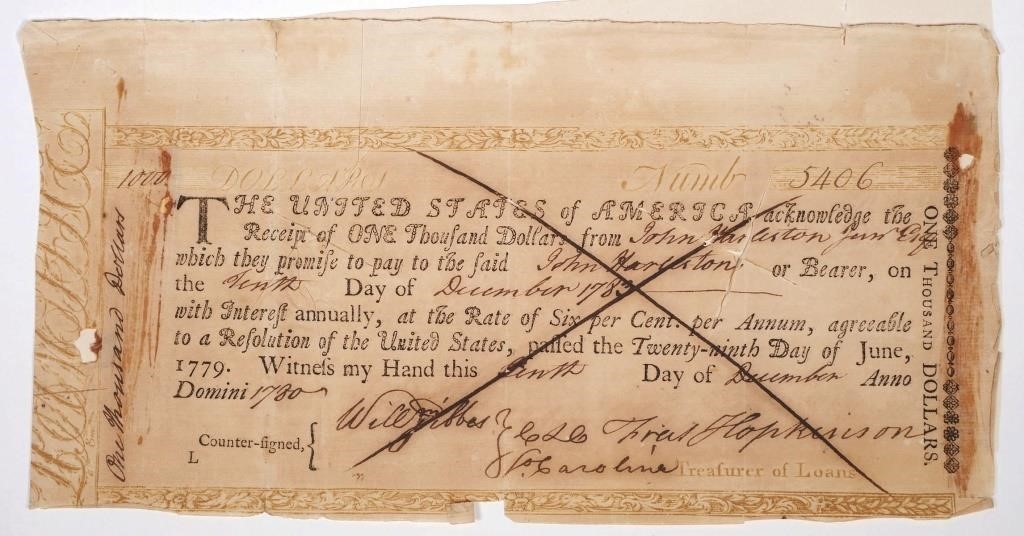 1000 DOLLARS Numb 5406
THE UNITED STATES of AMERICA acknowledge the
Receipt of ONE Thousand Dollars from John Harleston Junr Esqr
which they promise to pay to the said John Harleston, or Bearer, on
the Tenth Day of December 1783
with Interest annually, at the Rate of Six per Cent. per Annum, agreeable
to a Resolution of the United States, passed the Twenty-ninth Day of June,
1779. Witness my Hand this Tenth Day of December Anno
Domini 1780
Counter-signed, Will Gibbes Fras Hopkinson
L So Caroline Treasurer of Loans
One Thousand Dollars
ONE THOUSAND DOLLARS.